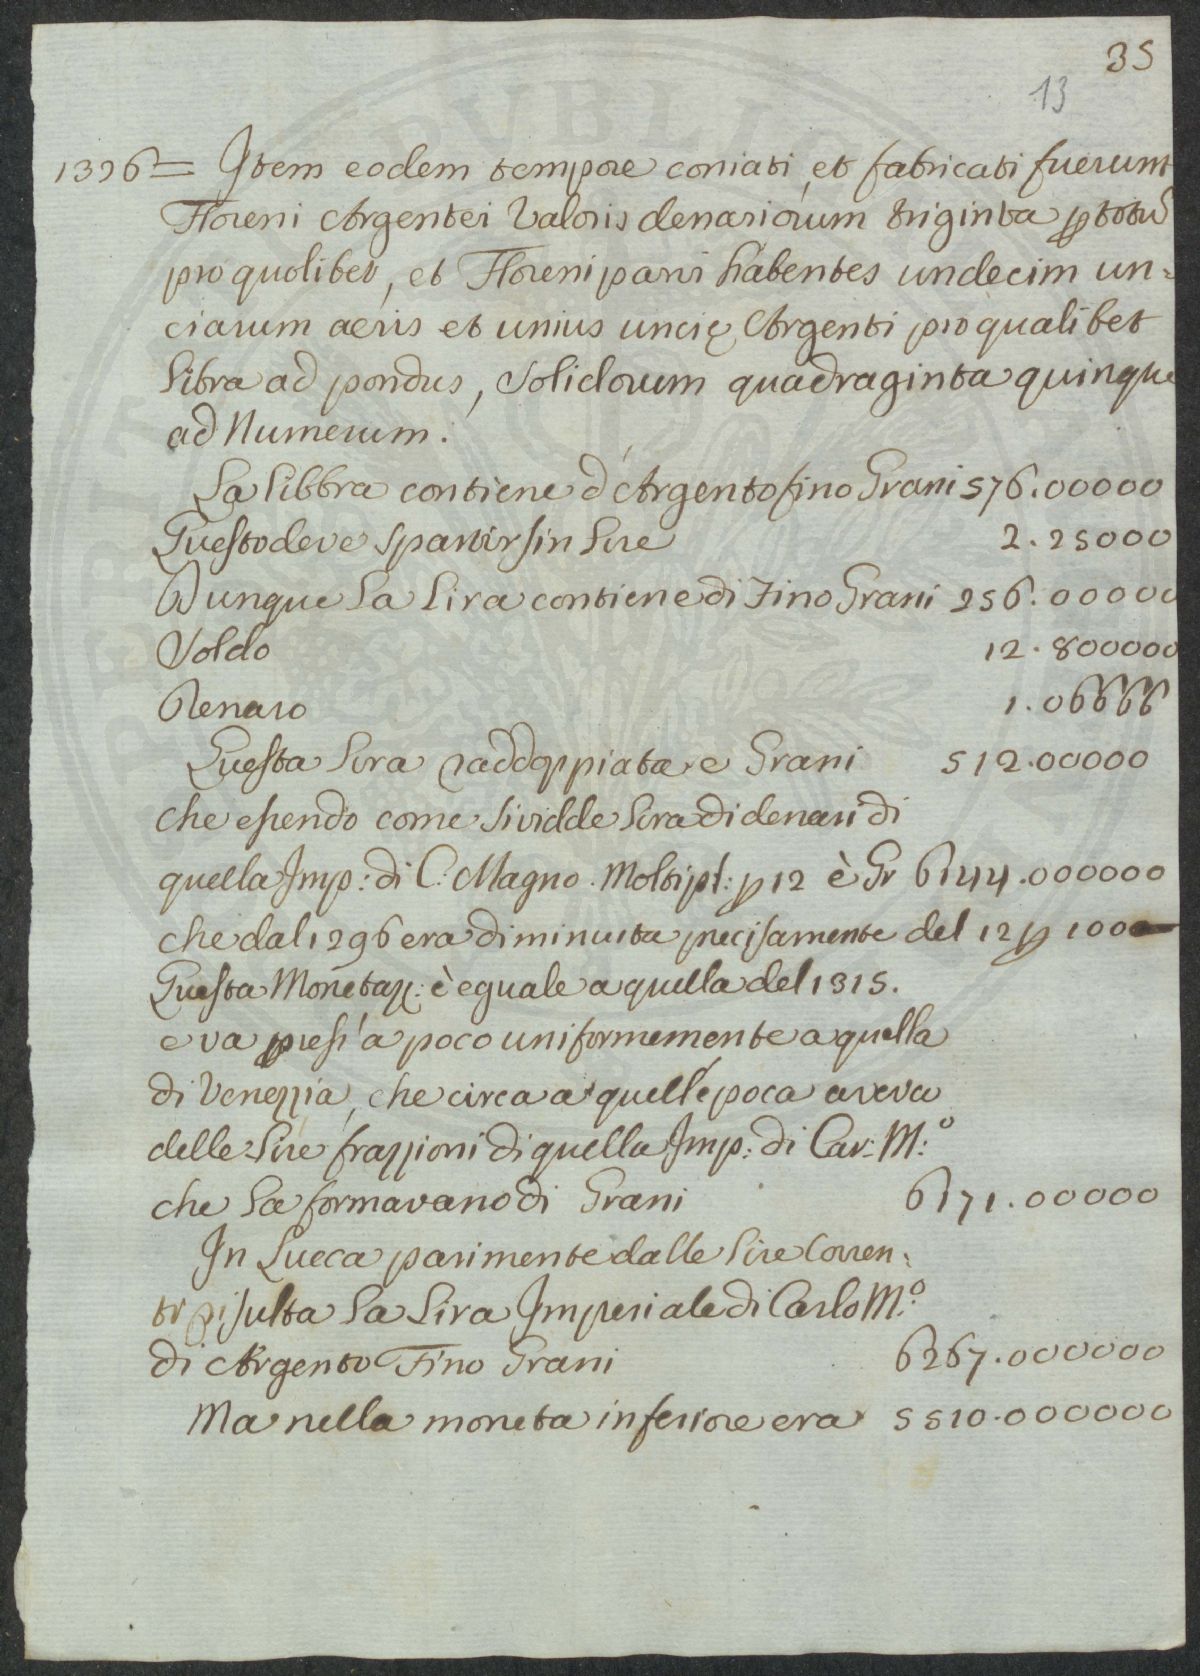 35
13
1326= Item eodem tempore coniati, et fabricati fuerunt
Floreni Argentei Valoris denariorum triginta p totū
pro quolibet, et Floreni parvi habentes undecim un=
ciarum aeris et unius uncię Argenti pro qualibet
libra ad pondus, Solidorum quadraginta quinque
ad Numerum.
La libbra contiene d'Argento fino Grani 576.00000
Questo deve spartirsi in lire 2.25000
Dunque la Lira contiene di Fino Grani 256.00000
Soldo 12.800000
Denaro 1.06666
Questa lira raddoppiata e Grani 512.00000
che essendo come si vidde lira di denari di
quella Imp: di C: Magno. Moltipl: p 12 è Gr 6144.000000
che dal 1296 era diminuita precisamente del 12 p 100
Questa Monetaz: è eguale a quella del 1315.
e va press'a poco uniformemente a quella
di Venezzia, che circa a quell'epoca aveva
delle lire frazzioni di quella Imp: di Car: M:º
che la formavano di Grani 6171.00000
In Lucca parimente dalle lire Corren=
ti risulta la Lira Imperiale di Carlo M:º
di Argento Fino Grani 6267.000000
Ma nella moneta inferiore era 5510.000000